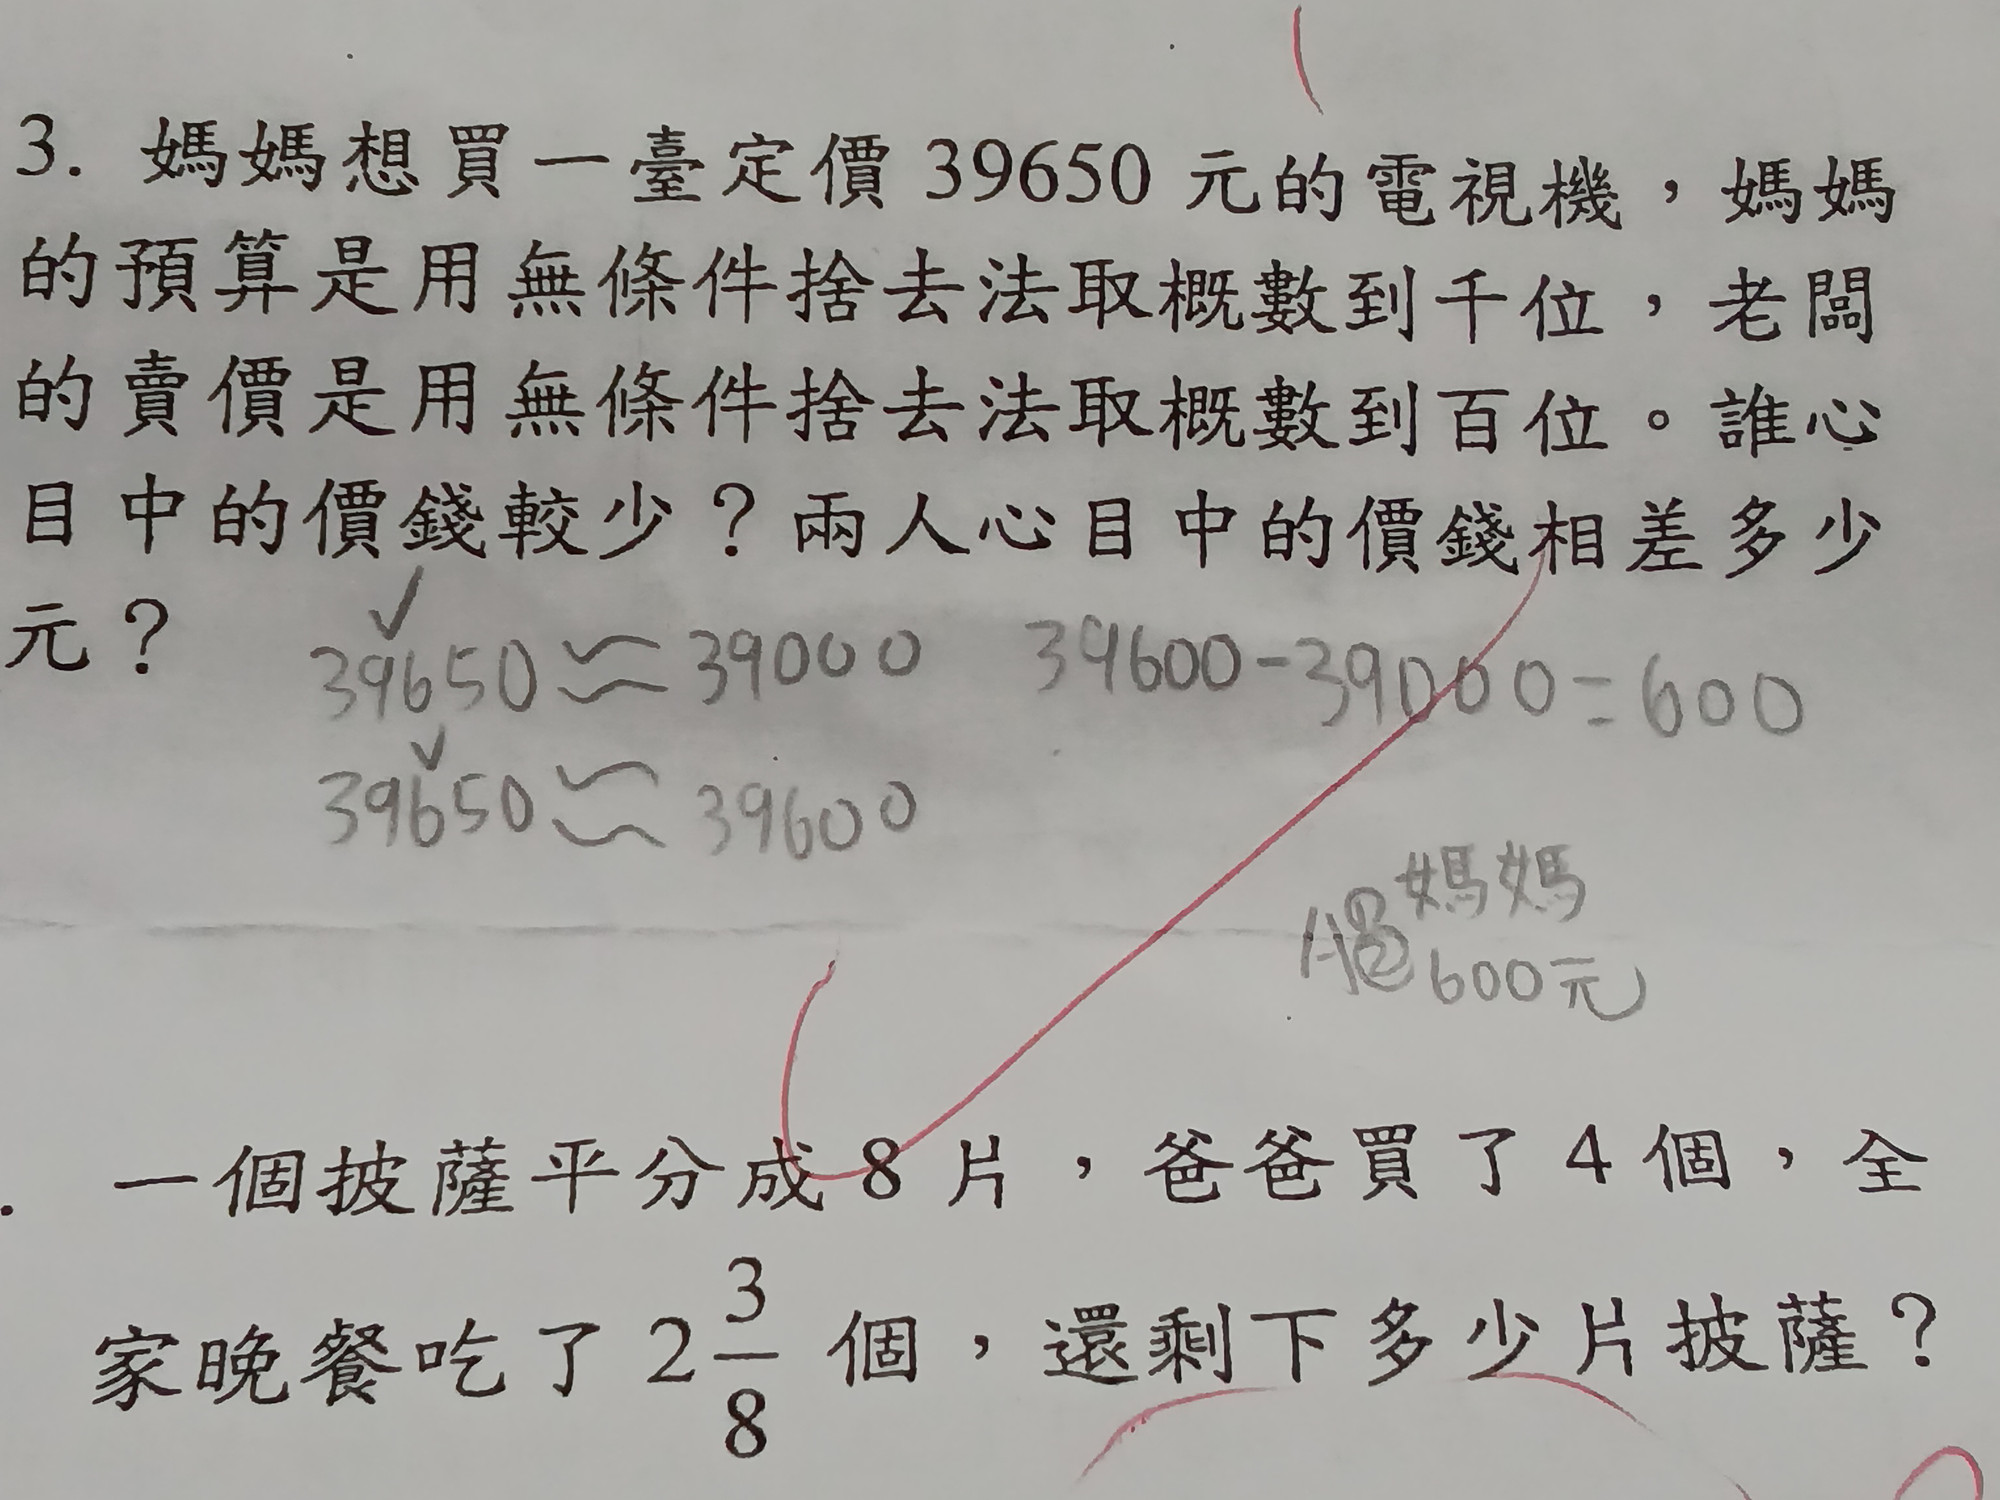 3. 媽媽想買一臺定價 39650 元的電視機，媽媽
的預算是用無條件捨去法取概數到千位，老闆
的賣價是用無條件捨去法取概數到百位。誰心
目中的價錢較少？兩人心目中的價錢相差多少
元？
39650≈39000 39600-39000=600
39650≈39600
A:①媽媽
②600元
一個披薩平分成 8 片，爸爸買了 4 個，全
家晚餐吃了 2 3/8 個，還剩下多少片披薩？